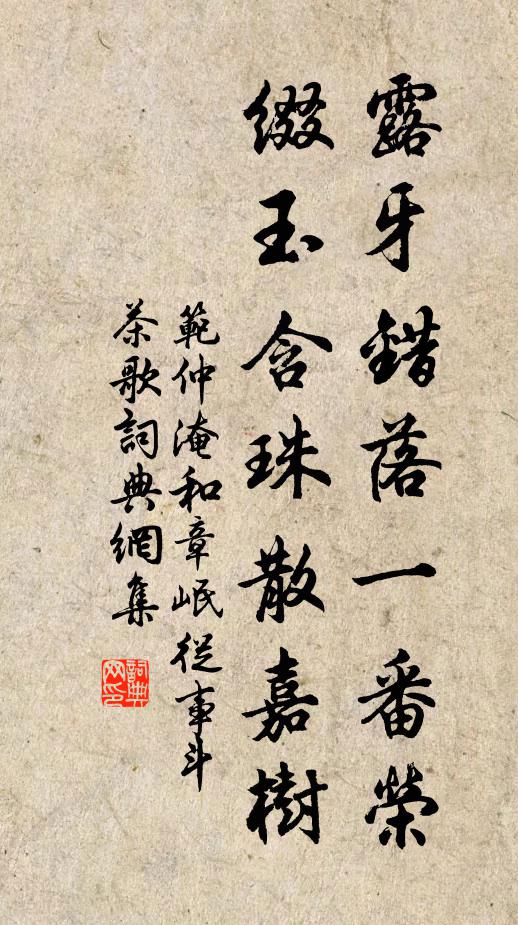 露牙錯落一番榮
綴玉含珠散嘉樹
範仲淹和章岷從事斗
茶歌詞典網集
詞典
网印